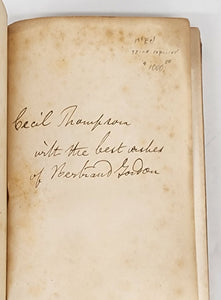 $1000.00
Cecil Thompson
with the best wishes
of Bertrand Gordon